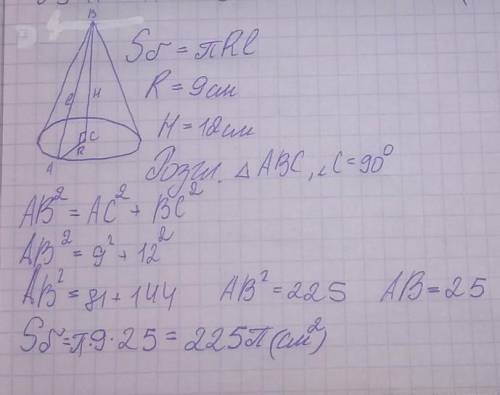 B
Sб = πRl
R = 9 см
H = 12 см
l H
C
R
A
Розгл. △ABC, ∠C = 90°
AB² = AC² + BC²
AB² = 9² + 12²
AB² = 81 + 144 AB² = 225 AB = 25
Sб = π·9·25 = 225π (см²)